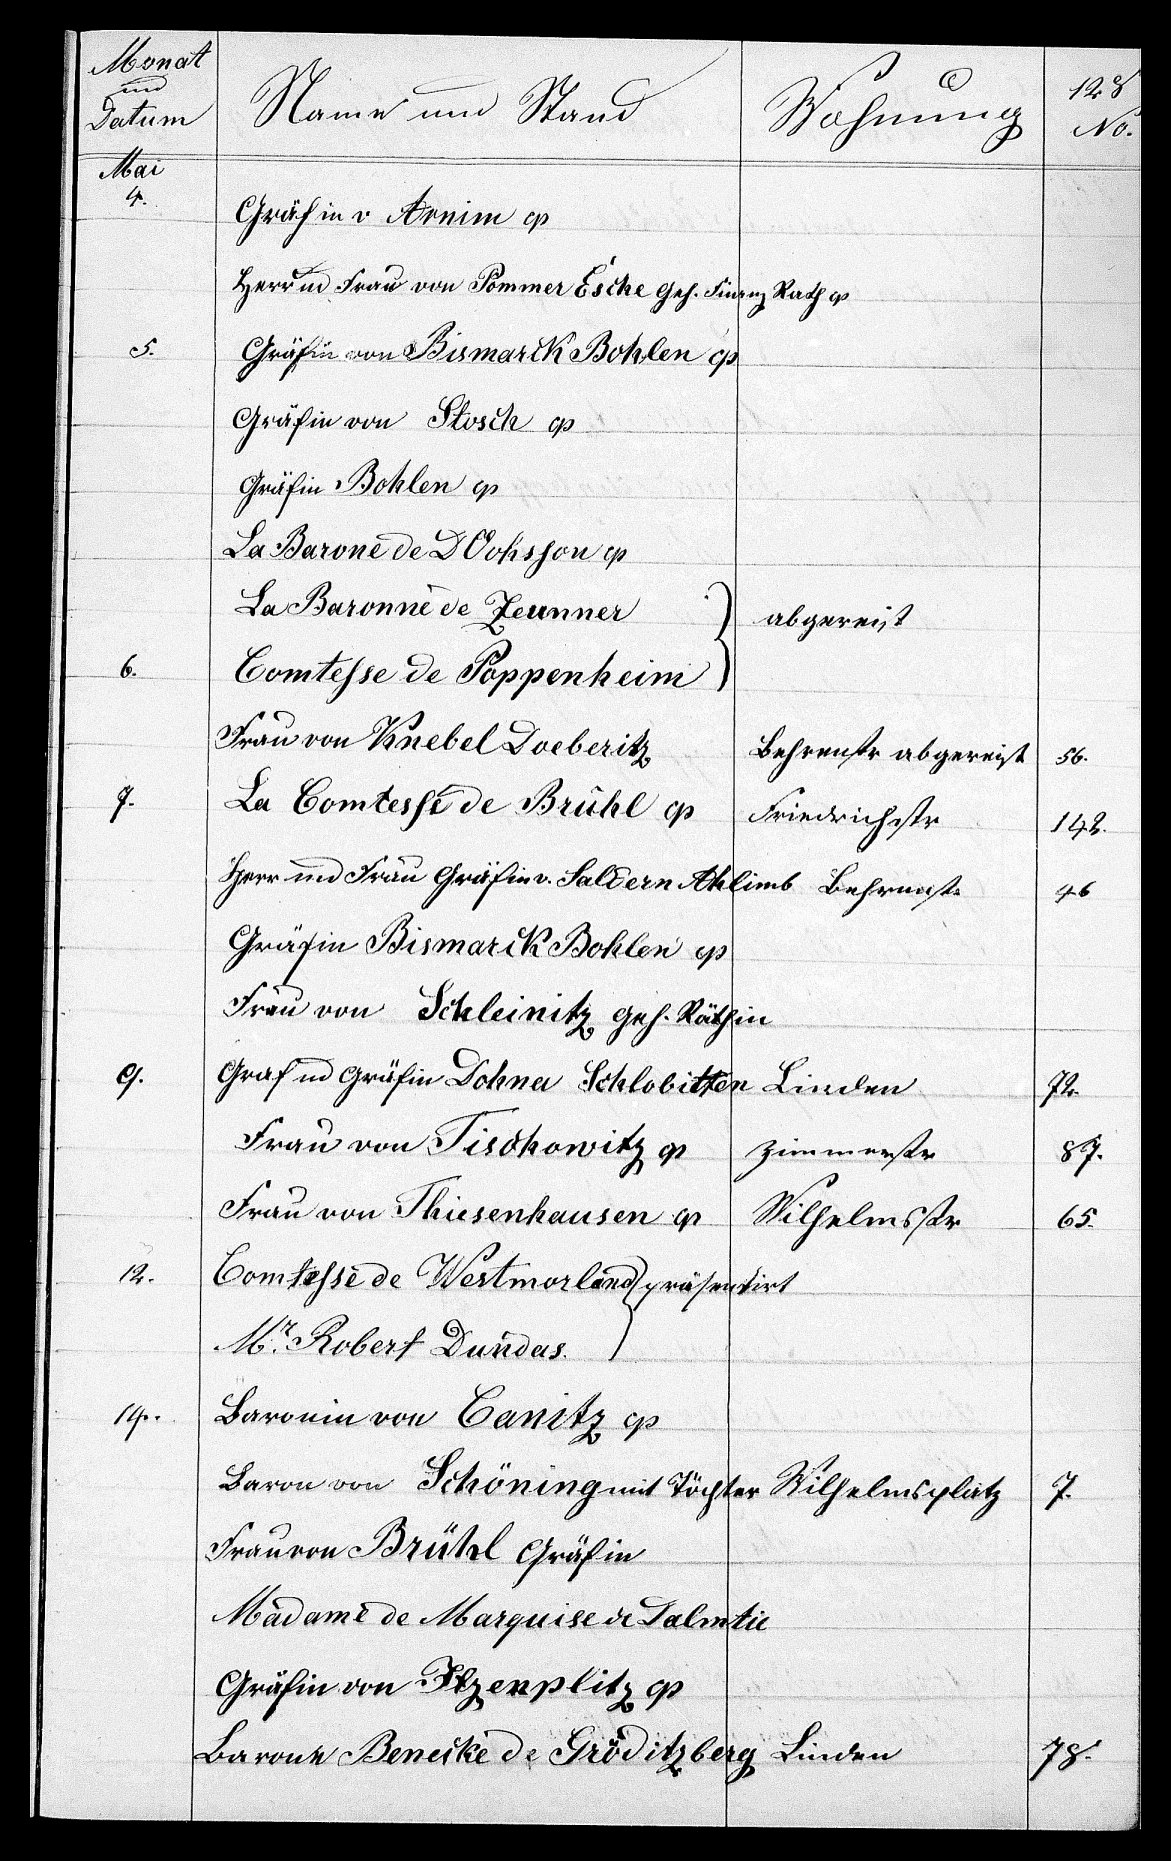 Monat
und
Datum
Name und Stand
Wohnung
128
No.
Mai
4. Gräfin v Arnim cp
Herr und Frau von Pommer Esche Geh. Finanz Rath cp
5. Gräfin von Bismarck Bohlen cp
Gräfin von Stosch cp
Gräfin Bohlen cp
La Barone de D'Ohsson cp
La Baronne de Zeunner } abgereist
6. Comtesse de Poppenheim
Frau von Knebel Doeberitz Behrenstr abgereist 56.
7. La Comtesse de Brühl cp Friedrichstr 142.
Herr und Frau Gräfin v. Saldern Ahlimb Behrenstr 46
Gräfin Bismarck Bohlen cp
Frau von Schleinitz Geh. Räthin
9. Graf und Gräfin Dohna Schlobitten Linden 72.
Frau von Tischowitz cp Zimmerstr 87.
Frau von Thiesenhausen cp Wilhelmsstr 65.
12. Comtesse de Westmorland } präsentirt
Mr. Robert Dundas.
14. Baronin von Canitz cp
Baron von Schöning mit Töchter Wilhelmsplatz 7.
Frau von Brühl Gräfin
Madame de Marquise de Dalmtie
Gräfin von Itzenplitz cp
Barone Benecke de Gröditzberg Linden 78.